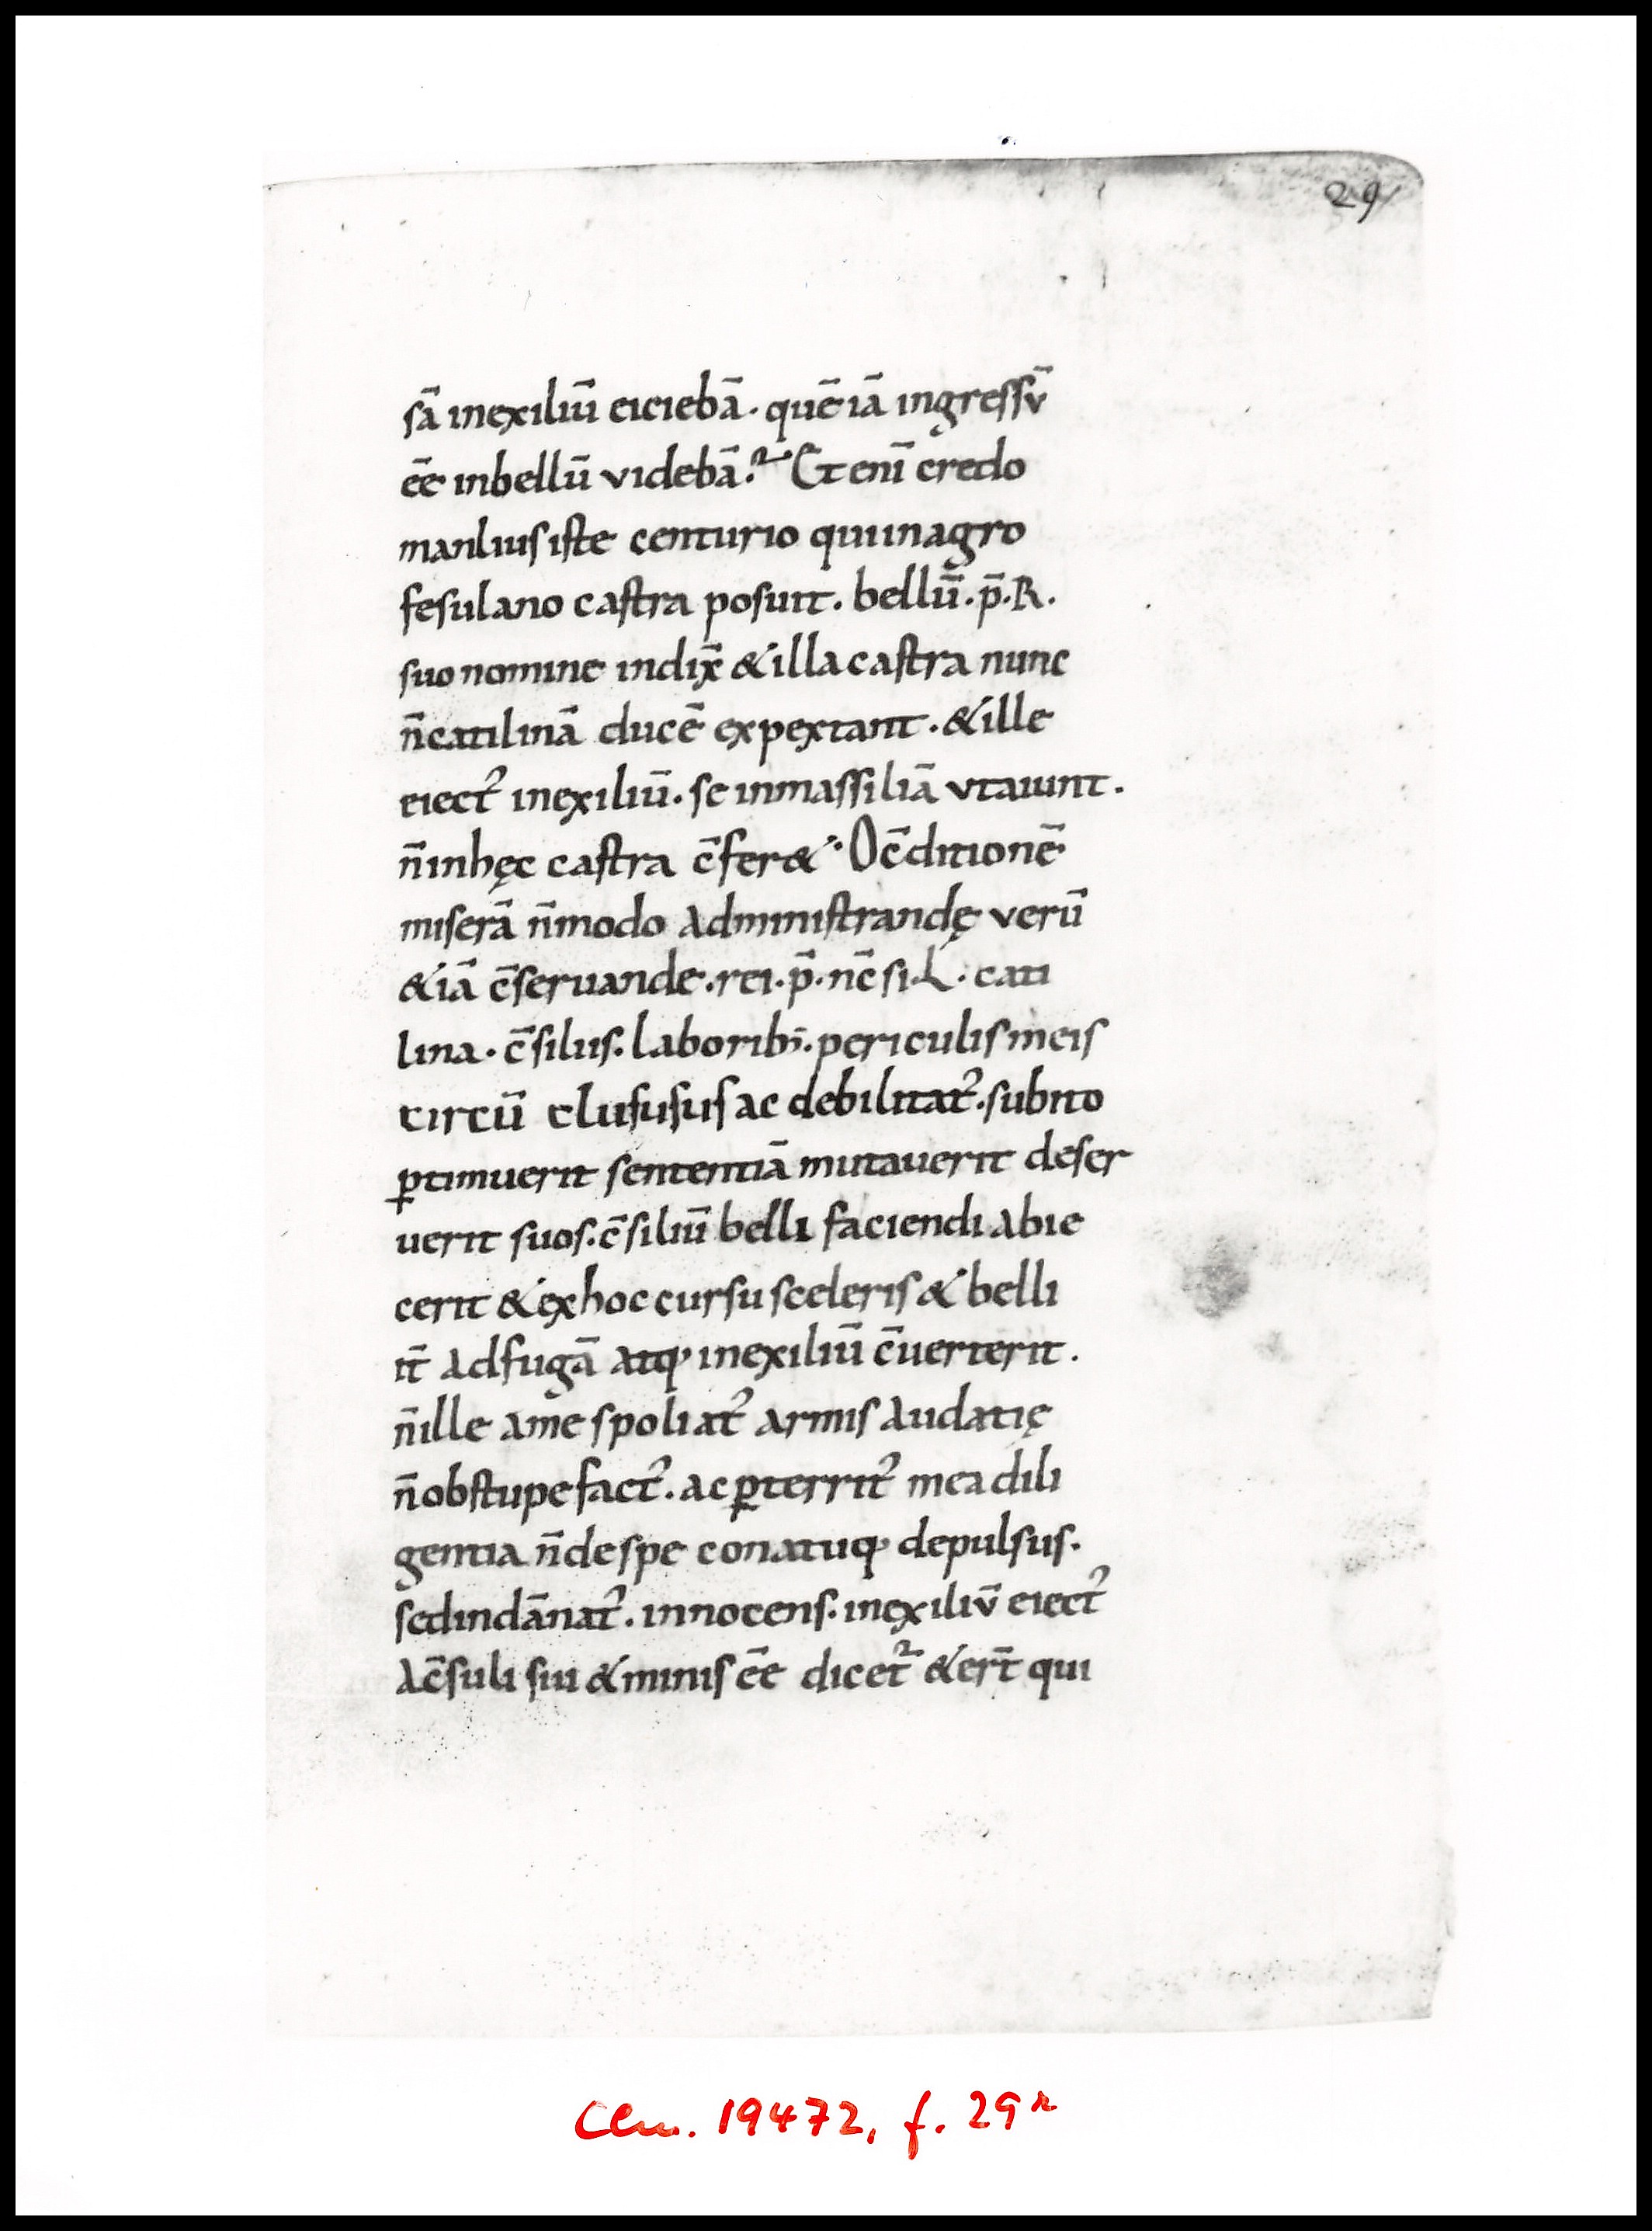 29
sā inexiliū eiciebā. quē iā ingressv̄
eē inbellū videbā. Et eni credo
manlius iste centurio quiinagro
fesulano castra posuit. bellū. p̄. R.
suo nomine indix̄ & illa castra nunc
n̄ catilinā ducē expextant. & ille
eiect᾿ inexiliū. se inmassiliā vtaiunt.
n̄ inhęc castra c̄fer&. O c̄ditionē
miserā n̄ modo administrandę verū
&iā c̄seruande. rei. p̄. nc̄ si. L. cati
lina. c̄silus. laborib;. periculis meis
circū clufusus ac debilitat᾿. subito
ꝑtimuerit sententiā mutauerit deser
uerit suos. c̄siliū belli faciendi abie
cerit & ex hoc cursu sceleris & belli
it̄ adfugā atq; inexiliū c̄uerterit.
n̄ ille ame spoliat᾿ armis audatię
n̄ obstupefact᾿. ac ꝑterrit᾿ mea dili
gentia n̄ de spe conatuq; depulsus.
sed indānat᾿. innocens. inexiliv̄ eiect᾿
ac̄suli sui & minis eē dicet᾿ & ert̄ qui
Clm. 19472, f. 29r